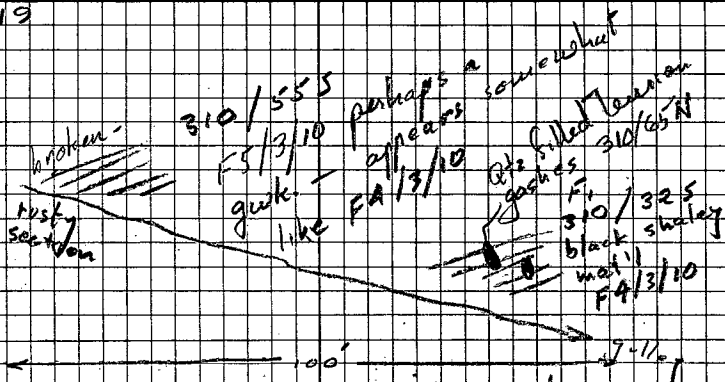 19
broken -
rusty
section
310/55S
F5/3/10
gwk. - perhaps a
like appears somewhat
F4/3/10
Qtz filled Tension
gashes 310/65N
F,
310/32S
black shaley
mat'l
F4/3/10
100'